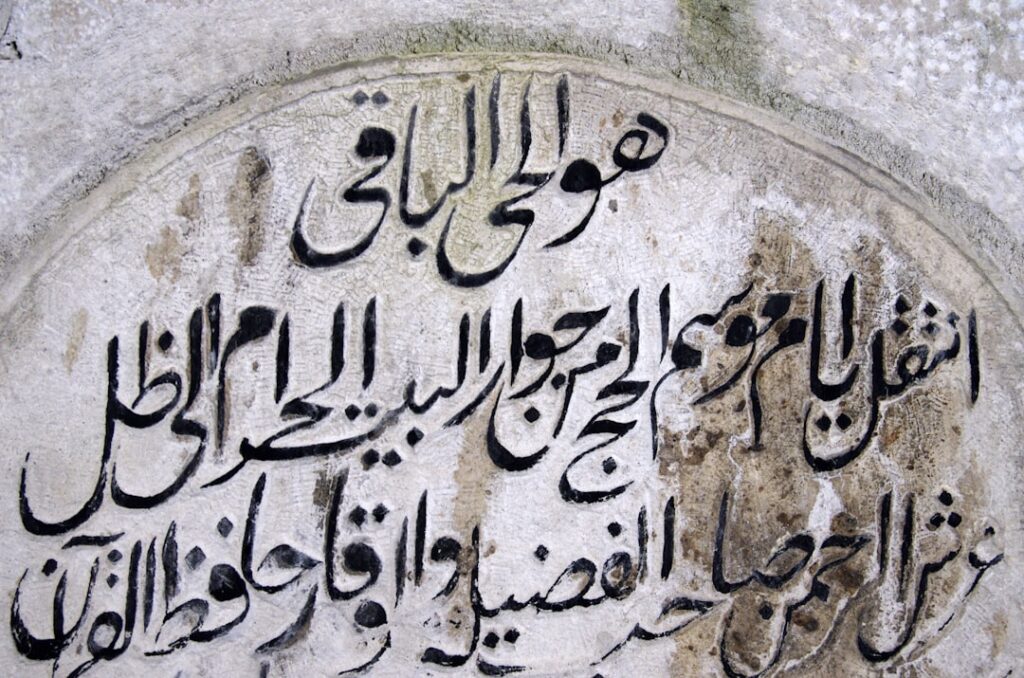 هو الحى الباقى
انتقل بايام موسم الحج من جوار البيت الحرام الى ظل
عرش الرحمن صاحب الفضيلة والوقار حافظ القرآن